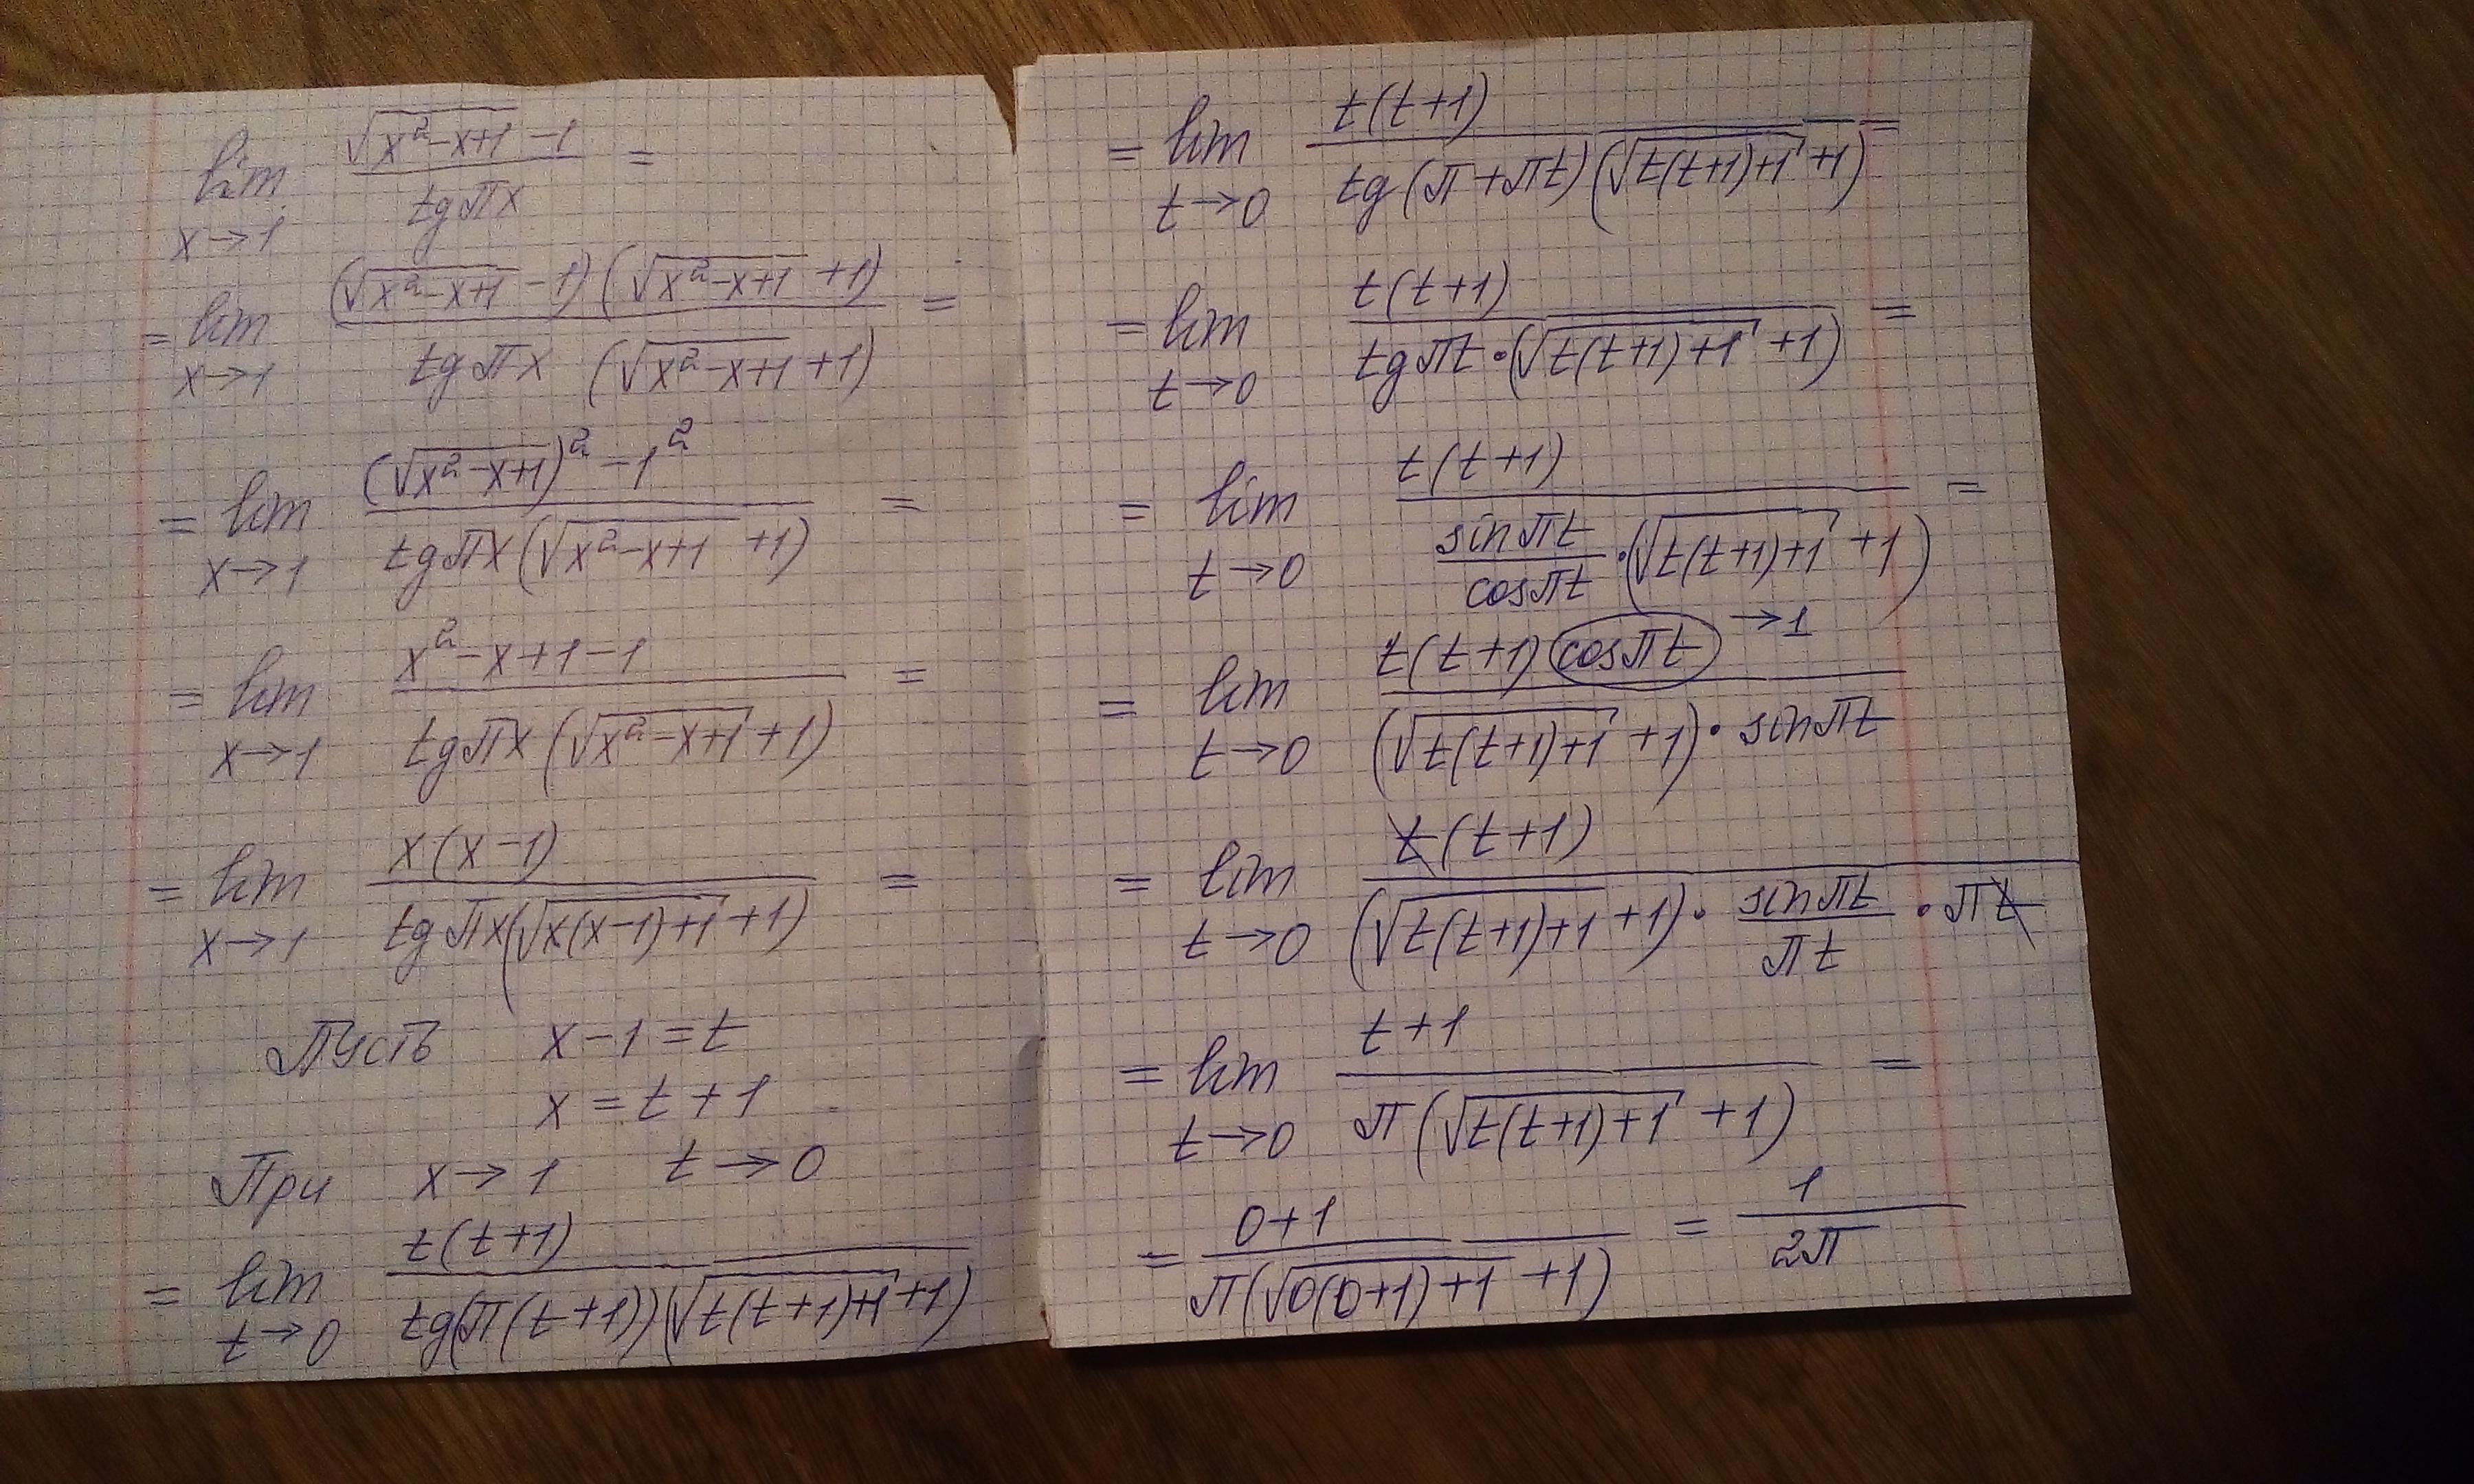 lim x→1 (√(x²-x+1) -1)/(tg πx) =
= lim x→1 ((√(x²-x+1) -1)(√(x²-x+1) +1))/(tg πx (√(x²-x+1) +1)) =
= lim x→1 ((√(x²-x+1))² -1²)/(tg πx (√(x²-x+1) +1)) =
= lim x→1 (x²-x+1-1)/(tg πx (√(x²-x+1) +1)) =
= lim x→1 (x(x-1))/(tg πx (√(x(x-1)+1) +1)) =
Пусть x-1=t
x=t+1
При x→1 t→0
= lim t→0 (t(t+1))/(tg(π(t+1))(√(t(t+1)+1) +1))
= lim t→0 (t(t+1))/(tg(π+πt)(√(t(t+1)+1) +1)) =
= lim t→0 (t(t+1))/(tg πt·(√(t(t+1)+1) +1)) =
= lim t→0 (t(t+1))/((sin πt)/(cos πt)·(√(t(t+1)+1) +1)) =
= lim t→0 (t(t+1) cos πt →1)/((√(t(t+1)+1) +1)·sin πt)
= lim t→0 (t(t+1))/((√(t(t+1)+1) +1)·(sin πt)/(πt)·πt)
= lim t→0 (t+1)/(π(√(t(t+1)+1) +1)) =
= (0+1)/(π(√(0(0+1)+1) +1)) = 1/(2π)